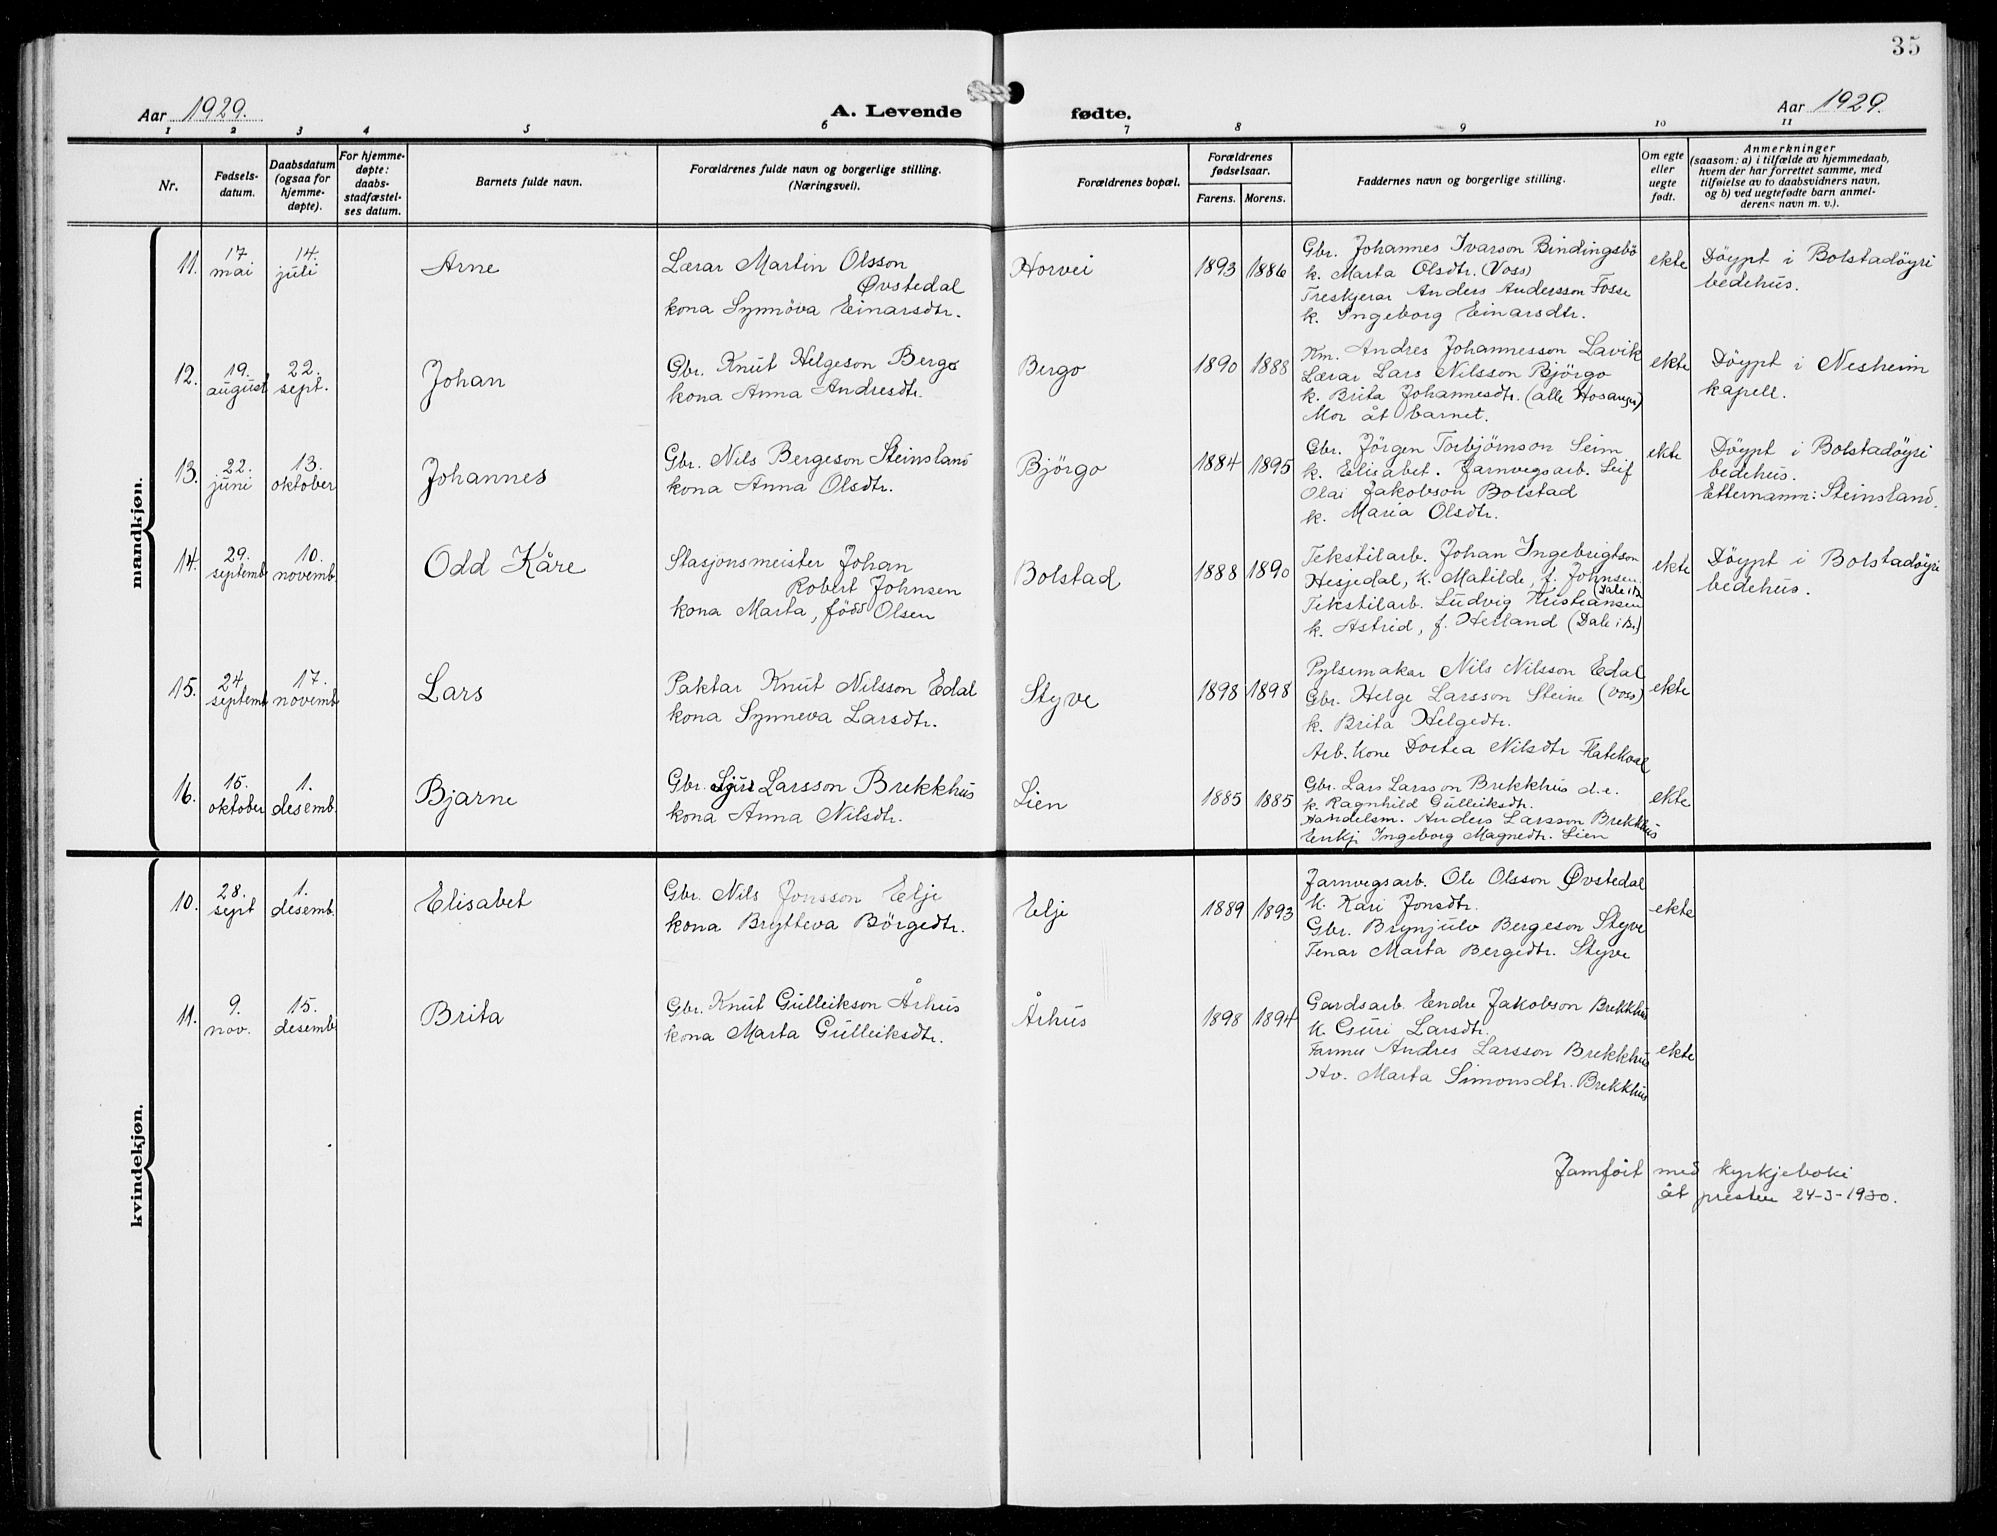 35
Aar 1929.
A. Levende fødte.
Aar 1929.
1 2 3 4 5 6 7 8 9 10 11
Nr.
Fødsels-
datum.
Daabsdatum
(ogsaa for
hjemme-
døpte).
For hjemme-
døpte:
daabs-
stadfæstel-
ses datum.
Barnets fulde navn.
Forældrenes fulde navn og borgerlige stilling.
(Næringsvei).
Forældrenes bopæl.
Forældrenes
fødselsaar.
Farens. Morens.
Faddernes navn og borgerlige stilling.
Om egte
eller
uegte
født.
Anmerkninger
(saasom: a) i tilfælde av hjemmedaab,
hvem der har forrettet samme, med
tilføielse av to daabsvidners navn,
og b) ved uegtefødte barn anmel-
derens navn m. v.).
mandkjøn.
11.
17
mai
14.
juli
Arne
Lærar Martin Olsson
Øvstedal
kona Synnöva Einarsdtr.
Horvei
1893 1886
Gbr. Johannes Ivarson Bindingsbö
k. Marta Olsdtr. (Voss)
Treskjerar Anders Andersson Fosse
k. Ingeborg Einarsdtr.
ekte
Döypt i Bolstadöyri
bedehus.
12.
19.
august
22.
sept.
Johan
Gbr. Knut Helgeson Bergo
kona Anna Andresdtr.
Bergo
1890 1888
Km. Andres Johannesson Lavik
Lærar Lars Nilsson Björgo
k. Brita Johannesdtr. (alle Hosanger)
Mor åt barnet.
ekte
Döypt i Nesheim
kapell.
13.
22.
juni
13.
oktober
Johannes
Gbr. Nils Bergeson Steinsland
kona Anna Olsdtr.
Björgo
1884 1895
Gbr. Jörgen Torbjørnson Seim
k. Elisabet. Jarnvegsarb. Leif
Olai Jakobson Bolstad
k. Maria Olsdtr.
ekte
Döypt i Bolstadöyri
bedehus.
Etternamn: Steinsland.
14.
29.
septemb.
10.
novemb.
Odd Kåre
Stasjonsmeister Johan
Robert Johnsen
kona Marta, född Olsen
Bolstad
1888 1890
Tekstilarb. Johan Ingebrigtson
Hesjedal, k. Matilde, f. Johnsen
(Dale i Br.)
Tekstilarb. Ludvig Kristiansen
k. Astrid, f. Herland (Dale i Br.)
ekte
Döypt i Bolstadöyri
bedehus.
15.
24
septemb
17.
novemb
Lars
Paktar Knut Nilsson Edal
kona Synneva Larsdtr.
Styve
1898 1898
Pylsemakar Nils Nilsson Edal
Gbr. Helge Larsson Steine (Voss)
k. Brita Helgedtr.
Arb. kone Dortea Nilsdtr Flatekval
ekte
16.
15.
oktober
1.
desemb.
Bjarne
Gbr. Larsson Brekkhus
kona Anna Nilsdtr.
Lien
1885 1885
Gbr. Lars Larsson Brekkhus d.e.
k. Ragnhild Gulleiksdtr.
Handelsm. Anders Larsson Brekkhus
Enkj Ingeborg Magnedtr. Lien
ekte
kvindekjøn.
10.
28.
sept
1.
desemb.
Elisabet
Gbr. Nils Jonsson Elje
kona Brytteva Börgedtr.
Elje
1889 1893
Jarnvegsarb. Ole Olsson Øvstedal
k. Kari Jonsdtr.
Gbr. Brynjulv Bergeson Styve
Tenar Marta Bergedtr. Styve
ekte
11.
9.
nov.
15.
desemb
Brita
Gbr. Knut Gulleikson Århus
kona Marta Gulleiksdtr.
Århus
1898 1894
Gardsarb. Endre Jakobson Brekkhus
k. Guri Larsdtr.
Farmer Andres Larsson Brekkhus
Hv. Marta Simonsdtr. Brekkhus
ekte
Jamfört med kyrkjeboki
åt presten 24-3-1930.